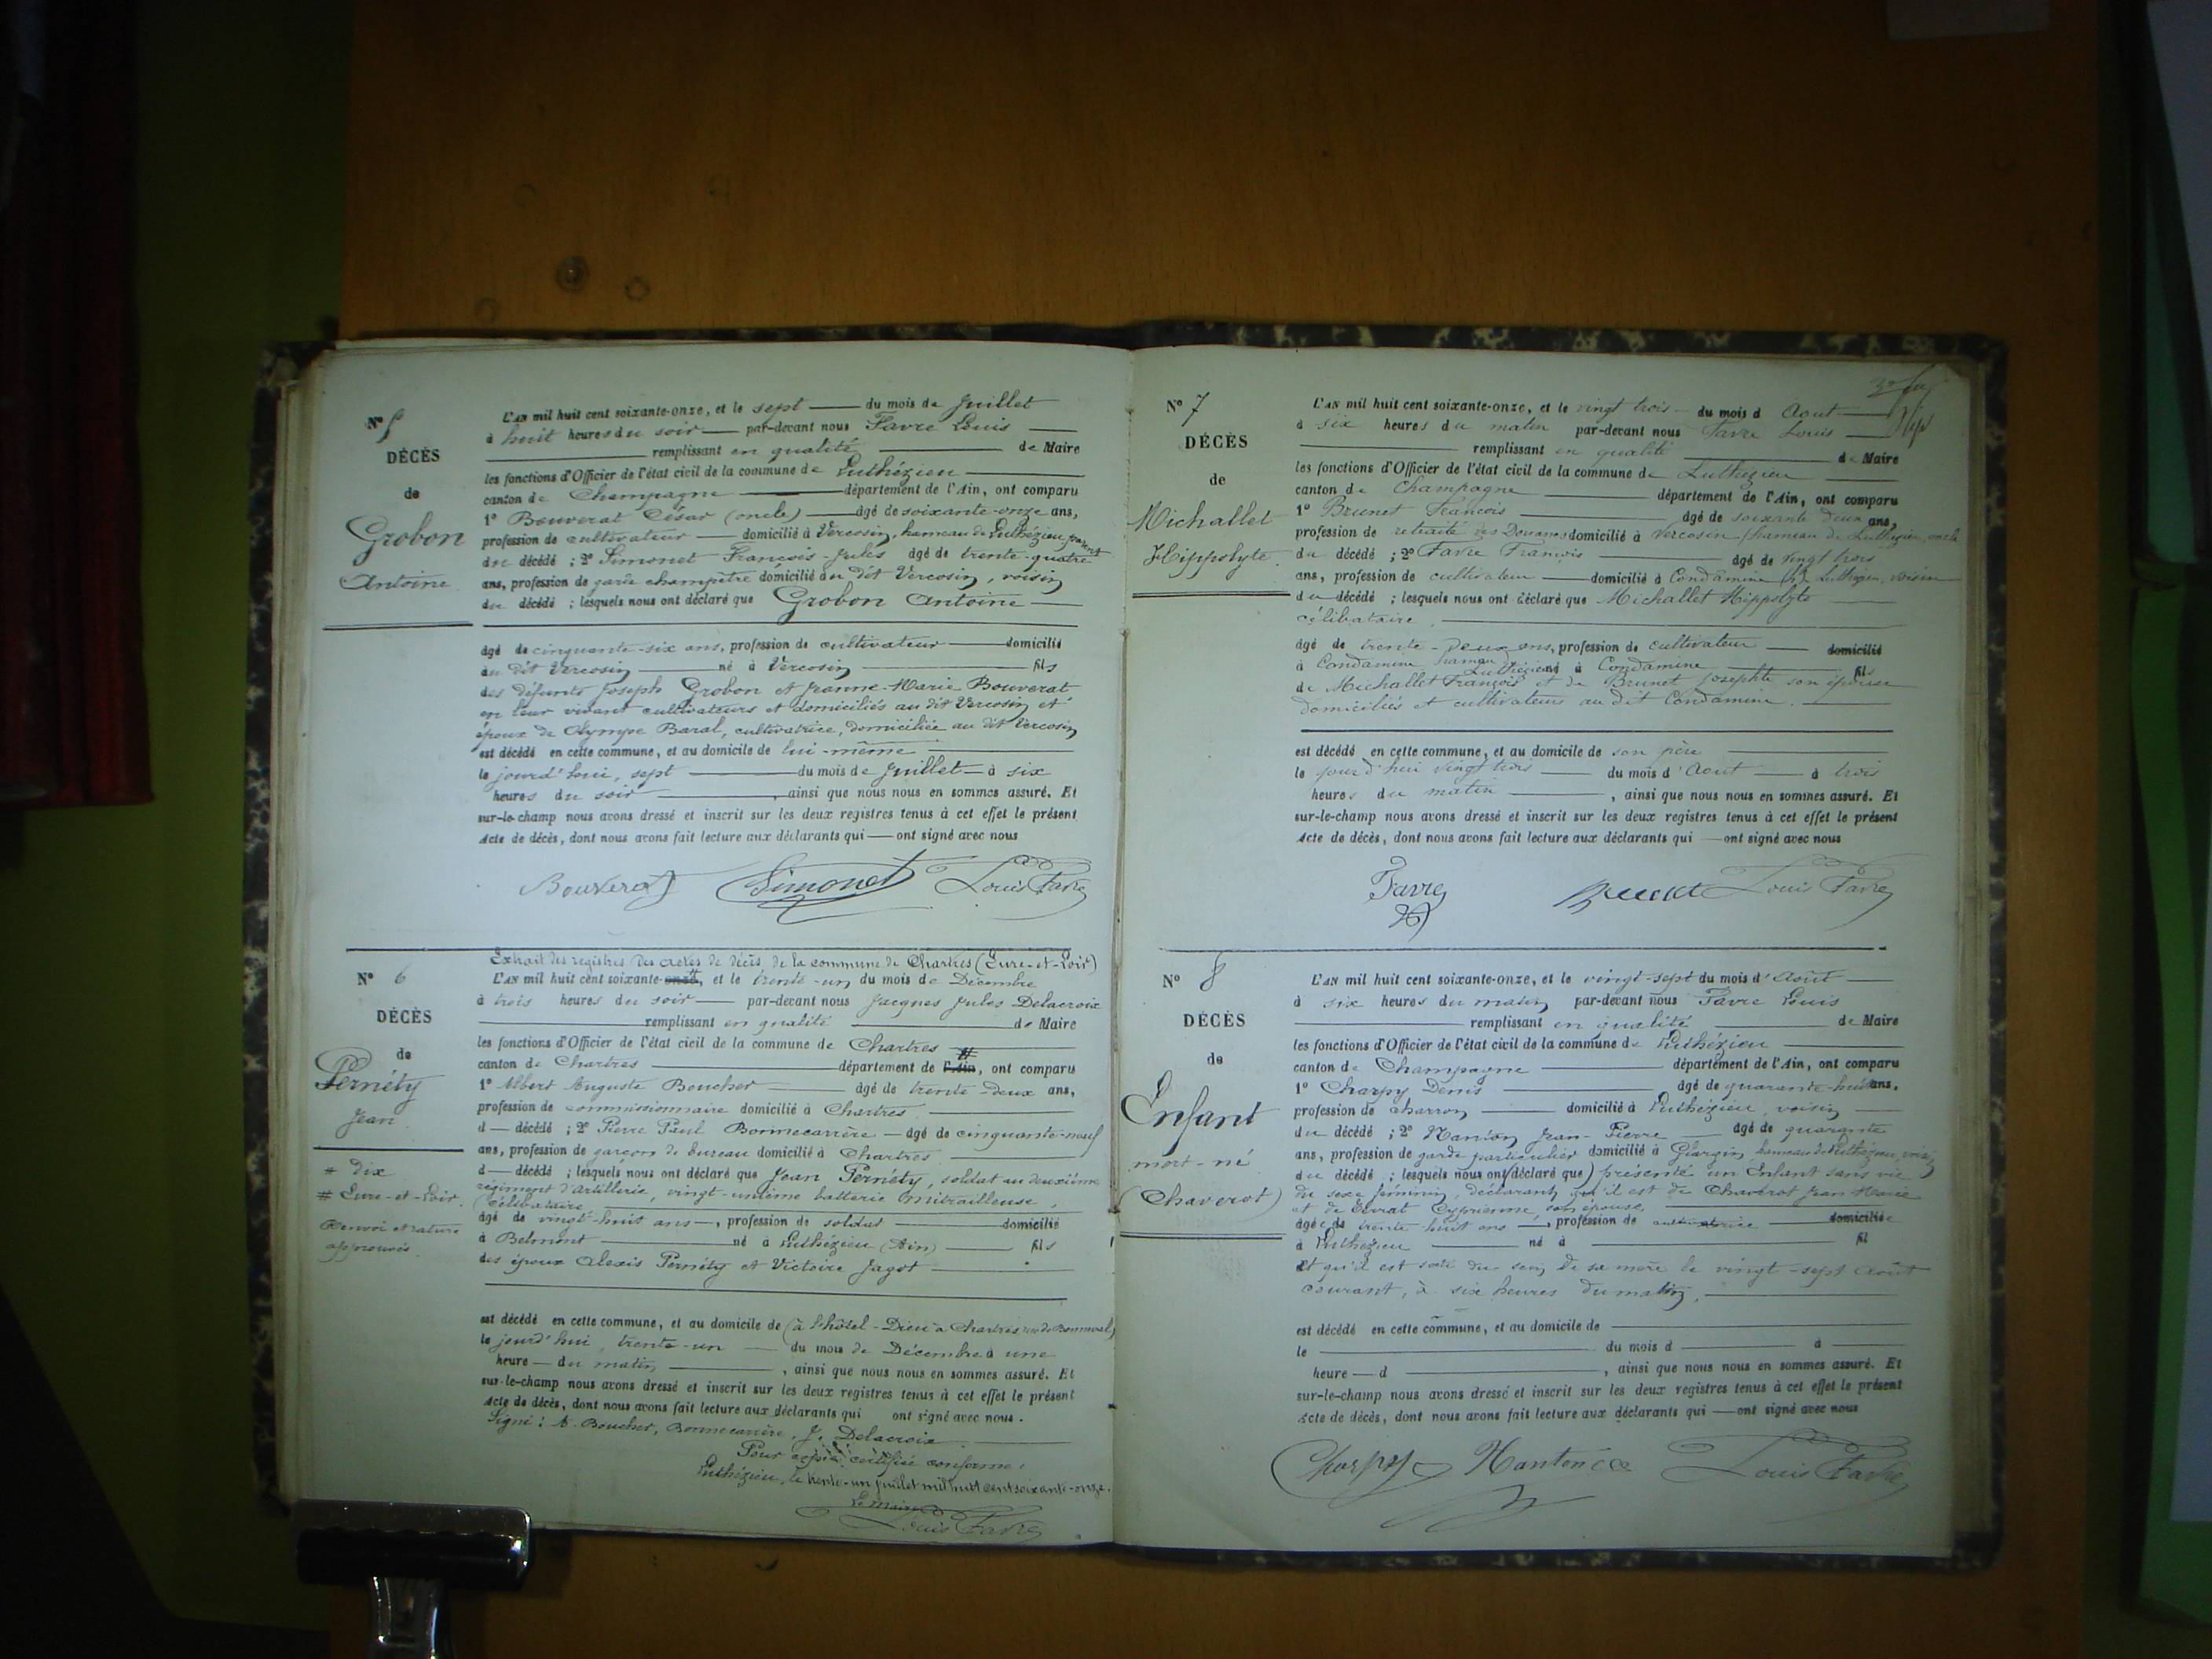 N° 5
DÉCÈS
de
Grobon
Antoine
L'AN mil huit cent soixante-onze, et le sept du mois de Juillet
à huit heures du soir par-devant nous Favre Louis
remplissant en qualité de Maire
les fonctions d'Officier de l'état civil de la commune de Luthézieu
canton de Champagne département de l'Ain, ont comparu
1° Bouverat César (oncle) âgé de soixante-onze ans,
profession de cultivateur domicilié à Vercosin, hameau de Luthézieu, parent
du décédé ; 2° Simonet François-Jules âgé de trente-quatre
ans, profession de garde champêtre domicilié au dit Vercosin, voisin
du décédé ; lesquels nous ont déclaré que Grobon Antoine
âgé de cinquante-six ans, profession de cultivateur domicilié
au dit Vercosin né à Vercosin fils
des défunts Joseph Grobon et Jeanne-Marie Bouverat
en leur vivant cultivateurs et domiciliés au dit Vercosin et
époux de Olympe Baral, cultivatrice, domiciliée au dit Vercosin
est décédé en cette commune, et au domicile de lui-même
le jourd'hui, sept du mois de Juillet à six
heures du soir, ainsi que nous nous en sommes assuré. Et
sur-le-champ nous avons dressé et inscrit sur les deux registres tenus à cet effet le présent
Acte de décès, dont nous avons fait lecture aux déclarants qui ont signé avec nous
Bouverat Simonet Louis Favre
Extrait des registres des actes de décès de la commune de Chartres (Eure-et-Loir)
N° 6
DÉCÈS
de
Pernéty
Jean
# dix
# Eure-et-Loir.
Renvoi et rature
approuvés
L'AN mil huit cent soixante-onze #, et le trente-un du mois de Décembre
à trois heures du soir par-devant nous Jacques Jules Delacroix
remplissant en qualité de Maire
les fonctions d'Officier de l'état civil de la commune de Chartres
canton de Chartres département de l'Ain #, ont comparu
1° Albert Auguste Boucher âgé de trente-deux ans,
profession de commissionnaire domicilié à Chartres
d décédé ; 2° Pierre Paul Bonnecarrère âgé de cinquante-neuf
ans, profession de garçon de bureau domicilié à Chartres
d décédé ; lesquels nous ont déclaré que Jean Pernéty, soldat au deuxième
régiment d'Artillerie, vingt-unième batterie (mitrailleuse
(célibataire
âgé de vingt-huit ans, profession de soldat domicilié
à Belmont né à Luthézieu (Ain) fils
des époux Alexis Pernéty et Victoire Jagot
est décédé en cette commune, et au domicile de (à l'hôtel-Dieu à Chartres rue de Bonneval)
le jourd'hui, trente-un du mois de Décembre à une
heure du matin, ainsi que nous nous en sommes assuré. Et
sur-le-champ nous avons dressé et inscrit sur les deux registres tenus à cet effet le présent
Acte de décès, dont nous avons fait lecture aux déclarants qui ont signé avec nous.
Signé : A. Boucher, Bonnecarrère, J. Delacroix
Pour copie certifiée conforme :
Luthézieu, le trente-un juillet mil huit cent soixante-onze.
Le maire
Louis Favre
N° 7
DÉCÈS
de
Michallet
Hippolyte
L'AN mil huit cent soixante-onze, et le vingt trois du mois d Aout
à six heures du matin par-devant nous Favre Louis
remplissant en qualité de Maire
les fonctions d'Officier de l'état civil de la commune de Luthézieu
canton de Champagne département de l'Ain, ont comparu
1° Brunet François âgé de soixante deux ans,
profession de retraité des Douanes domicilié à Vercosin (hameau de Luthézieu, oncle
du décédé ; 2° Favre François âgé de vingt trois
ans, profession de cultivateur domicilié à Condamine Luthézieu, voisin
du décédé ; lesquels nous ont déclaré que Michallet Hippolyte
célibataire
âgé de trente-deux ans, profession de cultivateur domicilié
à Condamine hameau Luthézieu né à Condamine fils
de Michallet François et de Brunet Josephte son épouse
domiciliés et cultivateurs au dit Condamine.
est décédé en cette commune, et au domicile de son père
le jour d'hui vingt trois du mois d'Aout à trois
heures du matin, ainsi que nous nous en sommes assuré. Et
sur-le-champ nous avons dressé et inscrit sur les deux registres tenus à cet effet le présent
Acte de décès, dont nous avons fait lecture aux déclarants qui ont signé avec nous
Favre Louis Favre
N° 8
DÉCÈS
de
Enfant
mort-né
(Chaverot)
L'AN mil huit cent soixante-onze, et le vingt-sept du mois d'Août
à six heures du matin par-devant nous Favre Louis
remplissant en qualité de Maire
les fonctions d'Officier de l'état civil de la commune de Luthézieu
canton de Champagne département de l'Ain, ont comparu
1° Charpy Denis âgé de quarante-huit ans,
profession de charron domicilié à Luthézieu, voisin
du décédé ; 2° Jean-Pierre âgé de quarante
ans, profession de garde particulier domicilié à hameau de Luthézieu, voisin
du décédé ; lesquels nous ont (déclaré que) présenté un Enfant sans vie
du sexe féminin, déclarant qu'il est de Chaverot Jean Marie
et de Cyprienne, son épouse,
âgée de trente-huit ans, profession de cultivatrice domiciliée
à Luthézieu né à fil
et qu'il est sorti du sein de sa mère le vingt-sept Août
courant, à six heures du matin,
est décédé en cette commune, et au domicile de
le du mois d à
heure d, ainsi que nous nous en sommes assuré. Et
sur-le-champ nous avons dressé et inscrit sur les deux registres tenus à cet effet le présent
Acte de décès, dont nous avons fait lecture aux déclarants qui ont signé avec nous
Charpy Louis Favre